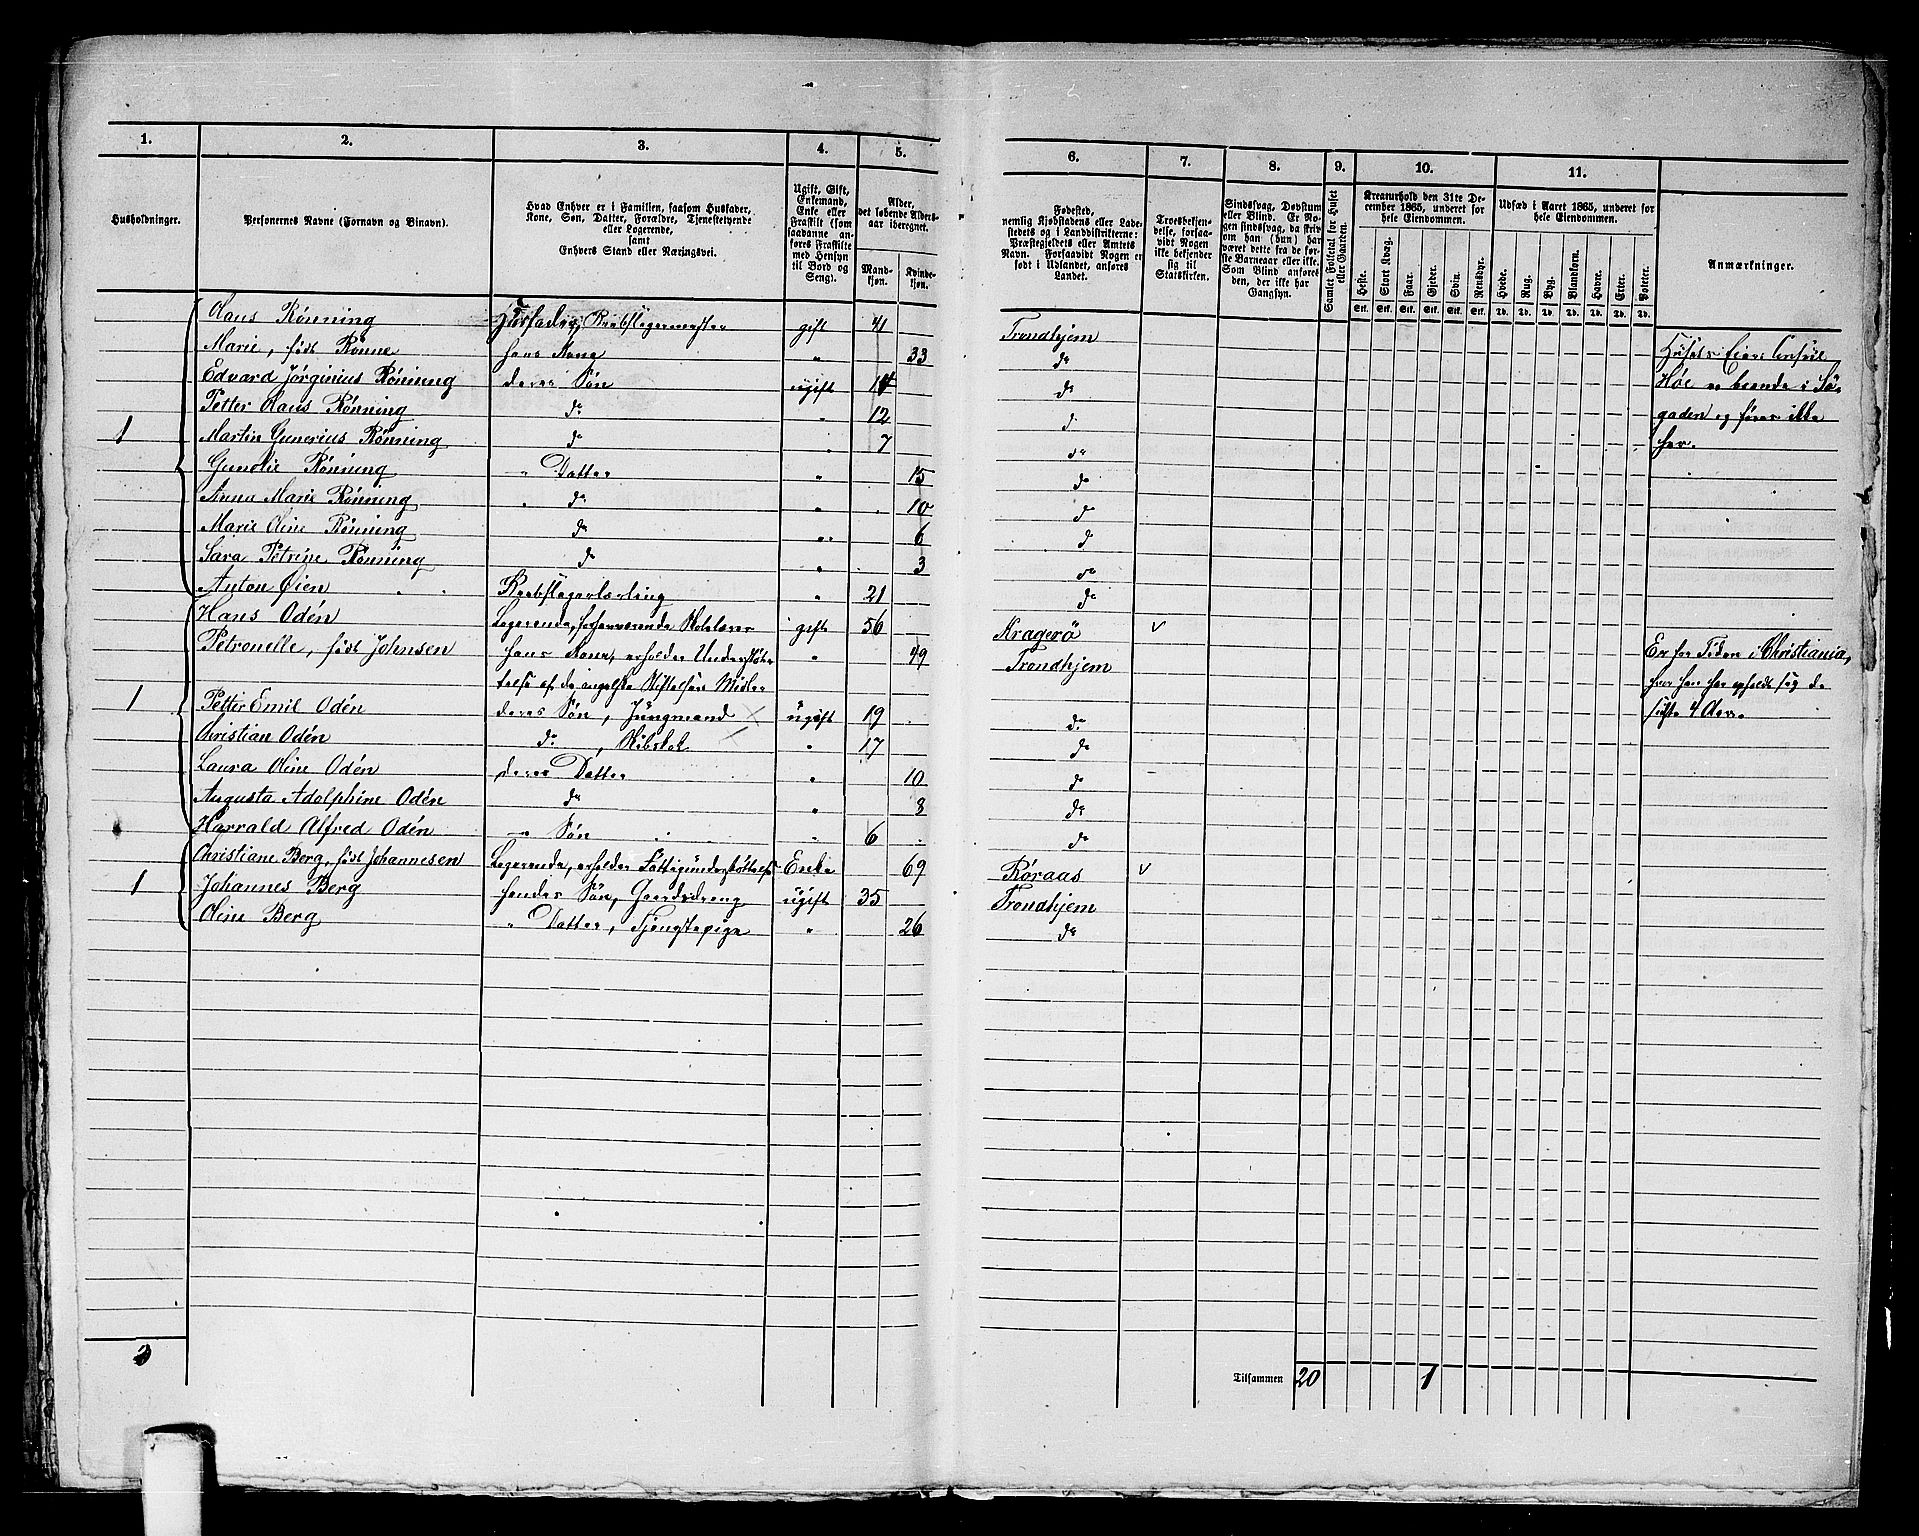 1. 2. 3. 4. 5. 6. 7. 8. 9. 10. 11.
Husholdninger.
Personernes Navne (Fornavn og Binavn).
Hvad Enhver er i Familien, saasom Husfader,
Kone, Søn, Datter, Forældre, Tjenestetyende
eller Logerende,
samt
Enhvers Stand eller Næringsvei.
Ugift, Gift,
Enkemand,
Enke eller
Fraskilt (som
saadanne an-
føres Fraskilte
med Hensyn
til Bord og
Seng).
Alder,
det løbende Alders-
aar iberegnet.
Mand-
kjøn.
Kvinde-
kjøn.
Fødested,
nemlig Kjøbstadens eller Lade-
stedets og i Landdistrikterne:
Præstegjeldets eller Amtets
Navn. Forsaavidt Nogen er
født i Udlandet, anføres
Landet.
Troesbekjen-
delse, forsaa-
vidt Nogen
ikke bekjender
sig til
Statskirken.
Sindssvag, Døvstum
eller Blind. Er No-
gen sindssvag, da skriv
om han (hun) har
været dette fra de før-
ste Barneaar eller ikke.
Som Blind anføres
den, der ikke har
Gangsyn.
Samlet Folketal for Huset
eller Gaarden.
Kreaturhold den 31te De-
cember 1865, underet for
hele Eiendommen.
Heste. Stort Kvæg. Faar. Gjeder. Svin. Rensdyr.
Stk. Stk. Stk. Stk. Stk. Stk.
Udsæd i Aaret 1865, underet for
hele Eiendommen.
Hvede. Rug. Byg. Blandkorn. Havre. Erter. Poteter.
Td. Td. Td. Td. Td. Td. Td.
Anmærkninger.
Claus Rønning Husfader, Rebslagermester gift 41 Trondhjem
Marie, født Rønne hans Kone " 33 do Husets Eier Consul
Edvard Jørginius Rønning deres Søn ugift 14 do Høe er boende i Sø-
Petter Claus Rønning do " 12 do gaden og føres ikke
1 Martin Gunerius Rønning do " 7 do her.
Gunelie Rønning " Datter " 15 do
Anna Marie Rønning " do " 10 do
Marie Oline Rønning do " 6 do
Sara Petrine Rønning do " 3 do
Anton Øien Rebslagerlærling " 21 do
Hans Odén Logerende, forhenværende gift 56 Kragerø v
Petronelle, født Johnsen hans Kone, erholder Understøt- " 49 Trondhjem Er for Tiden i Christiania,
telse af de Stiftelsers Midler hvor han har opholdt sig de
1 Petter Emil Odén deres Søn, Jungmand × ugift 19 do sidste 4 Aar.
Christian Odén do " 17 do
Laura Oline Odén deres Datter " 10 do
Augusta Adolphine Odén do " 8 do
Harrald Alfred Odén " Søn " 6 do
Christiane Berg, født Johannesen Logerende, erholder Fattigunderstøttelse Enke 69 Røraas v
1 Johannes Berg hendes Søn, Gaardsdreng ugift 35 Trondhjem
Oline Berg " Datter, Tjenestepige " 26 do
3 Tilsammen 20 1